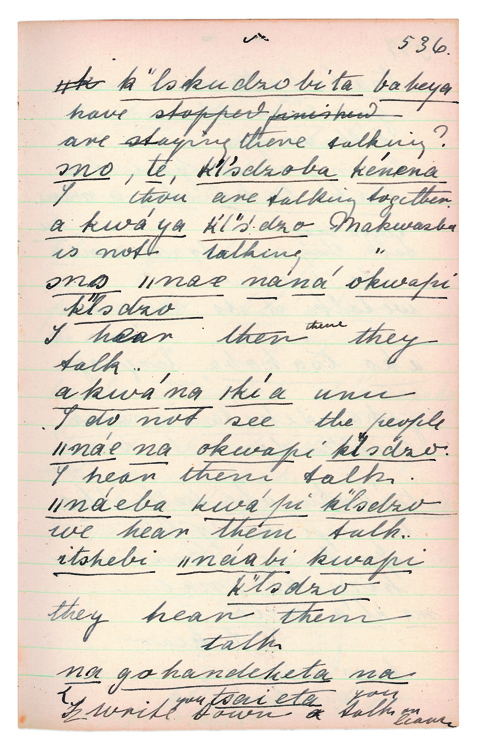 536.
k"lskudzobita babeya
have stopped finished
are staying there talking?
mo, te, k"l'sdzoba kénéná
I thou are talking together.
a kwáya k"l's'dzo Makwasba
is not talking "
mo ǁnae naná okwapi
k"lsdzo
I hear then there they
talk.
akwána ǀkía unu
I do not see the people
ǁnáe na okwapi k"lsdzo.
I hear them talk.
ǁnáeba kwápi k"lsdzo
we hear them talk.
itshebi ǁnáabi kwapi
k"lsdzo
they hear them
talk
na gohandeketa na
tsaieta
I write you down a talk you